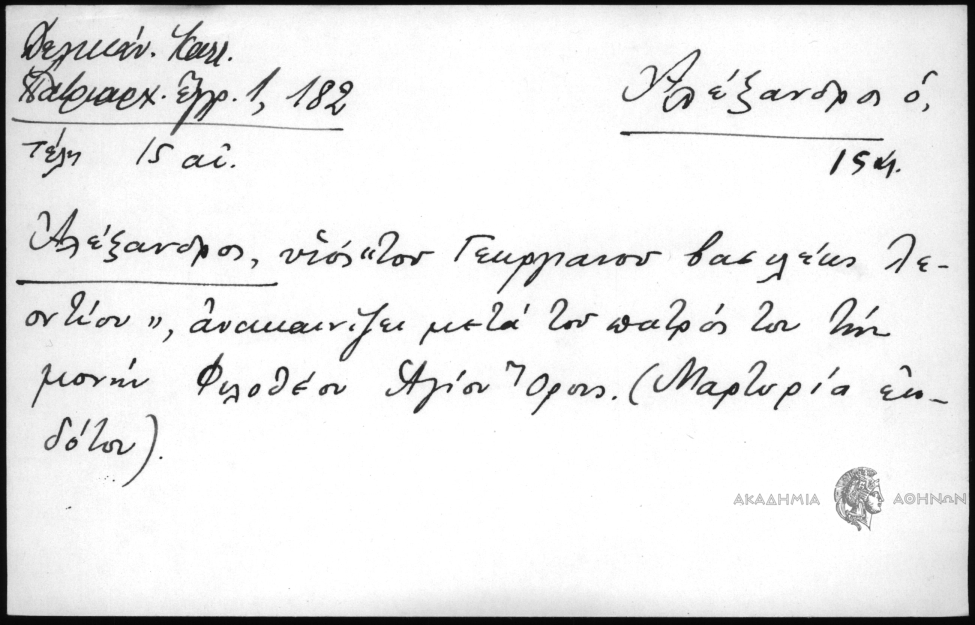 Δελικάν. Κατ.
Πατριαρχ. ἔγγρ. 1, 182
Ἀλέξανδρος ὁ,
τέλη 15 αἰ.
15 αἰ.
Ἀλέξανδρος, υἱός "του Γεωργιανού βασιλέως Λε-
οντίου", ἀνακαινίζει μετά του πατρός του τήν
μονήν Φιλοθέου Ἁγίου Ὄρους. (Μαρτυρία ἐκ-
δότου).
ΑΚΑΔΗΜΙΑ ΑΘΗΝΩΝ